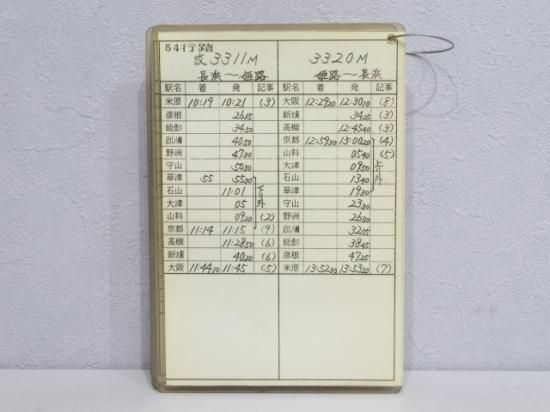 54行路
改3311M 3320M
長浜～姫路 姫路～長浜
駅名 着 発 記事 駅名 着 発 記事
米原 10:19 10:21 (3) 大阪 12:29 20 12:30 10 (8)
彦根 26 15 新大 34 25 (3)
能登 34 50 高槻 12:45 40 (3)
43 50 京都 12:59 30 13:00 20 (4)
野洲 47 30 山科 05 40 (5)
守山 50 30 大津 09 50 上り
草津 55 55 30 石山 13 40 外
石山 11:01 下り 草津 19 30
大津 05 外 守山 23 30
山科 09 20 (2) 野洲 26 30
京都 11:14 11:15 (9) 32 55
高槻 11:28 50 (6) 38 45
40 20 (6) 彦根 47 25
大阪 11:44 10 11:45 (5) 米原 13:52 30 13:53 20 (7)